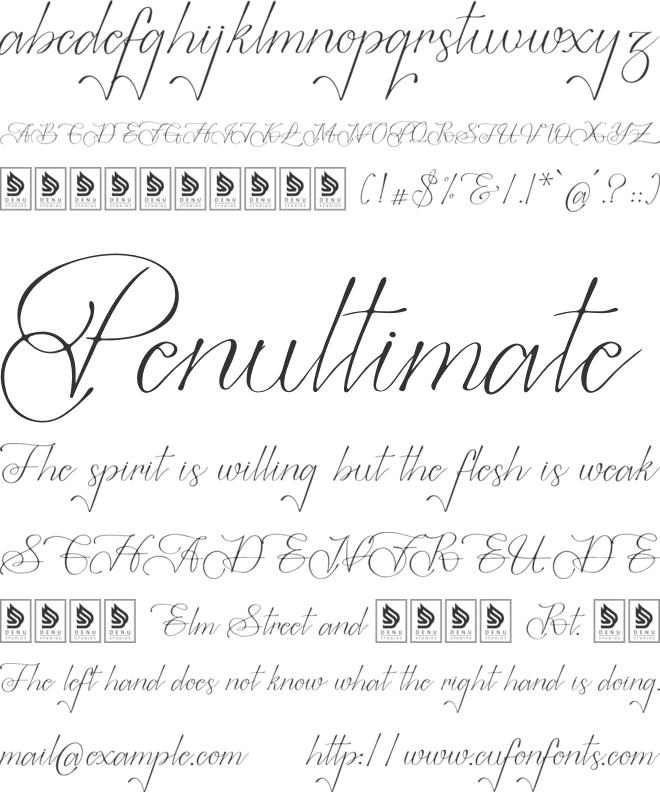 abcdefghijklmnopqrstuvwxyz
ABCDEFGHIJKLMNOPQRSTUVWXYZ
DENU STUDIOS DENU STUDIOS DENU STUDIOS DENU STUDIOS DENU STUDIOS DENU STUDIOS DENU STUDIOS DENU STUDIOS DENU STUDIOS DENU STUDIOS (!#$%&/.|*`@´.?::)
Penultimate
The spirit is willing but the flesh is weak
SCHADENFREUDE
DENU STUDIOS DENU STUDIOS DENU STUDIOS DENU STUDIOS Elm Street and DENU STUDIOS DENU STUDIOS DENU STUDIOS DENU STUDIOS Rt. DENU STUDIOS DENU STUDIOS
The left hand does not know what the right hand is doing.
mail@example.com http://www.cufonfonts.com